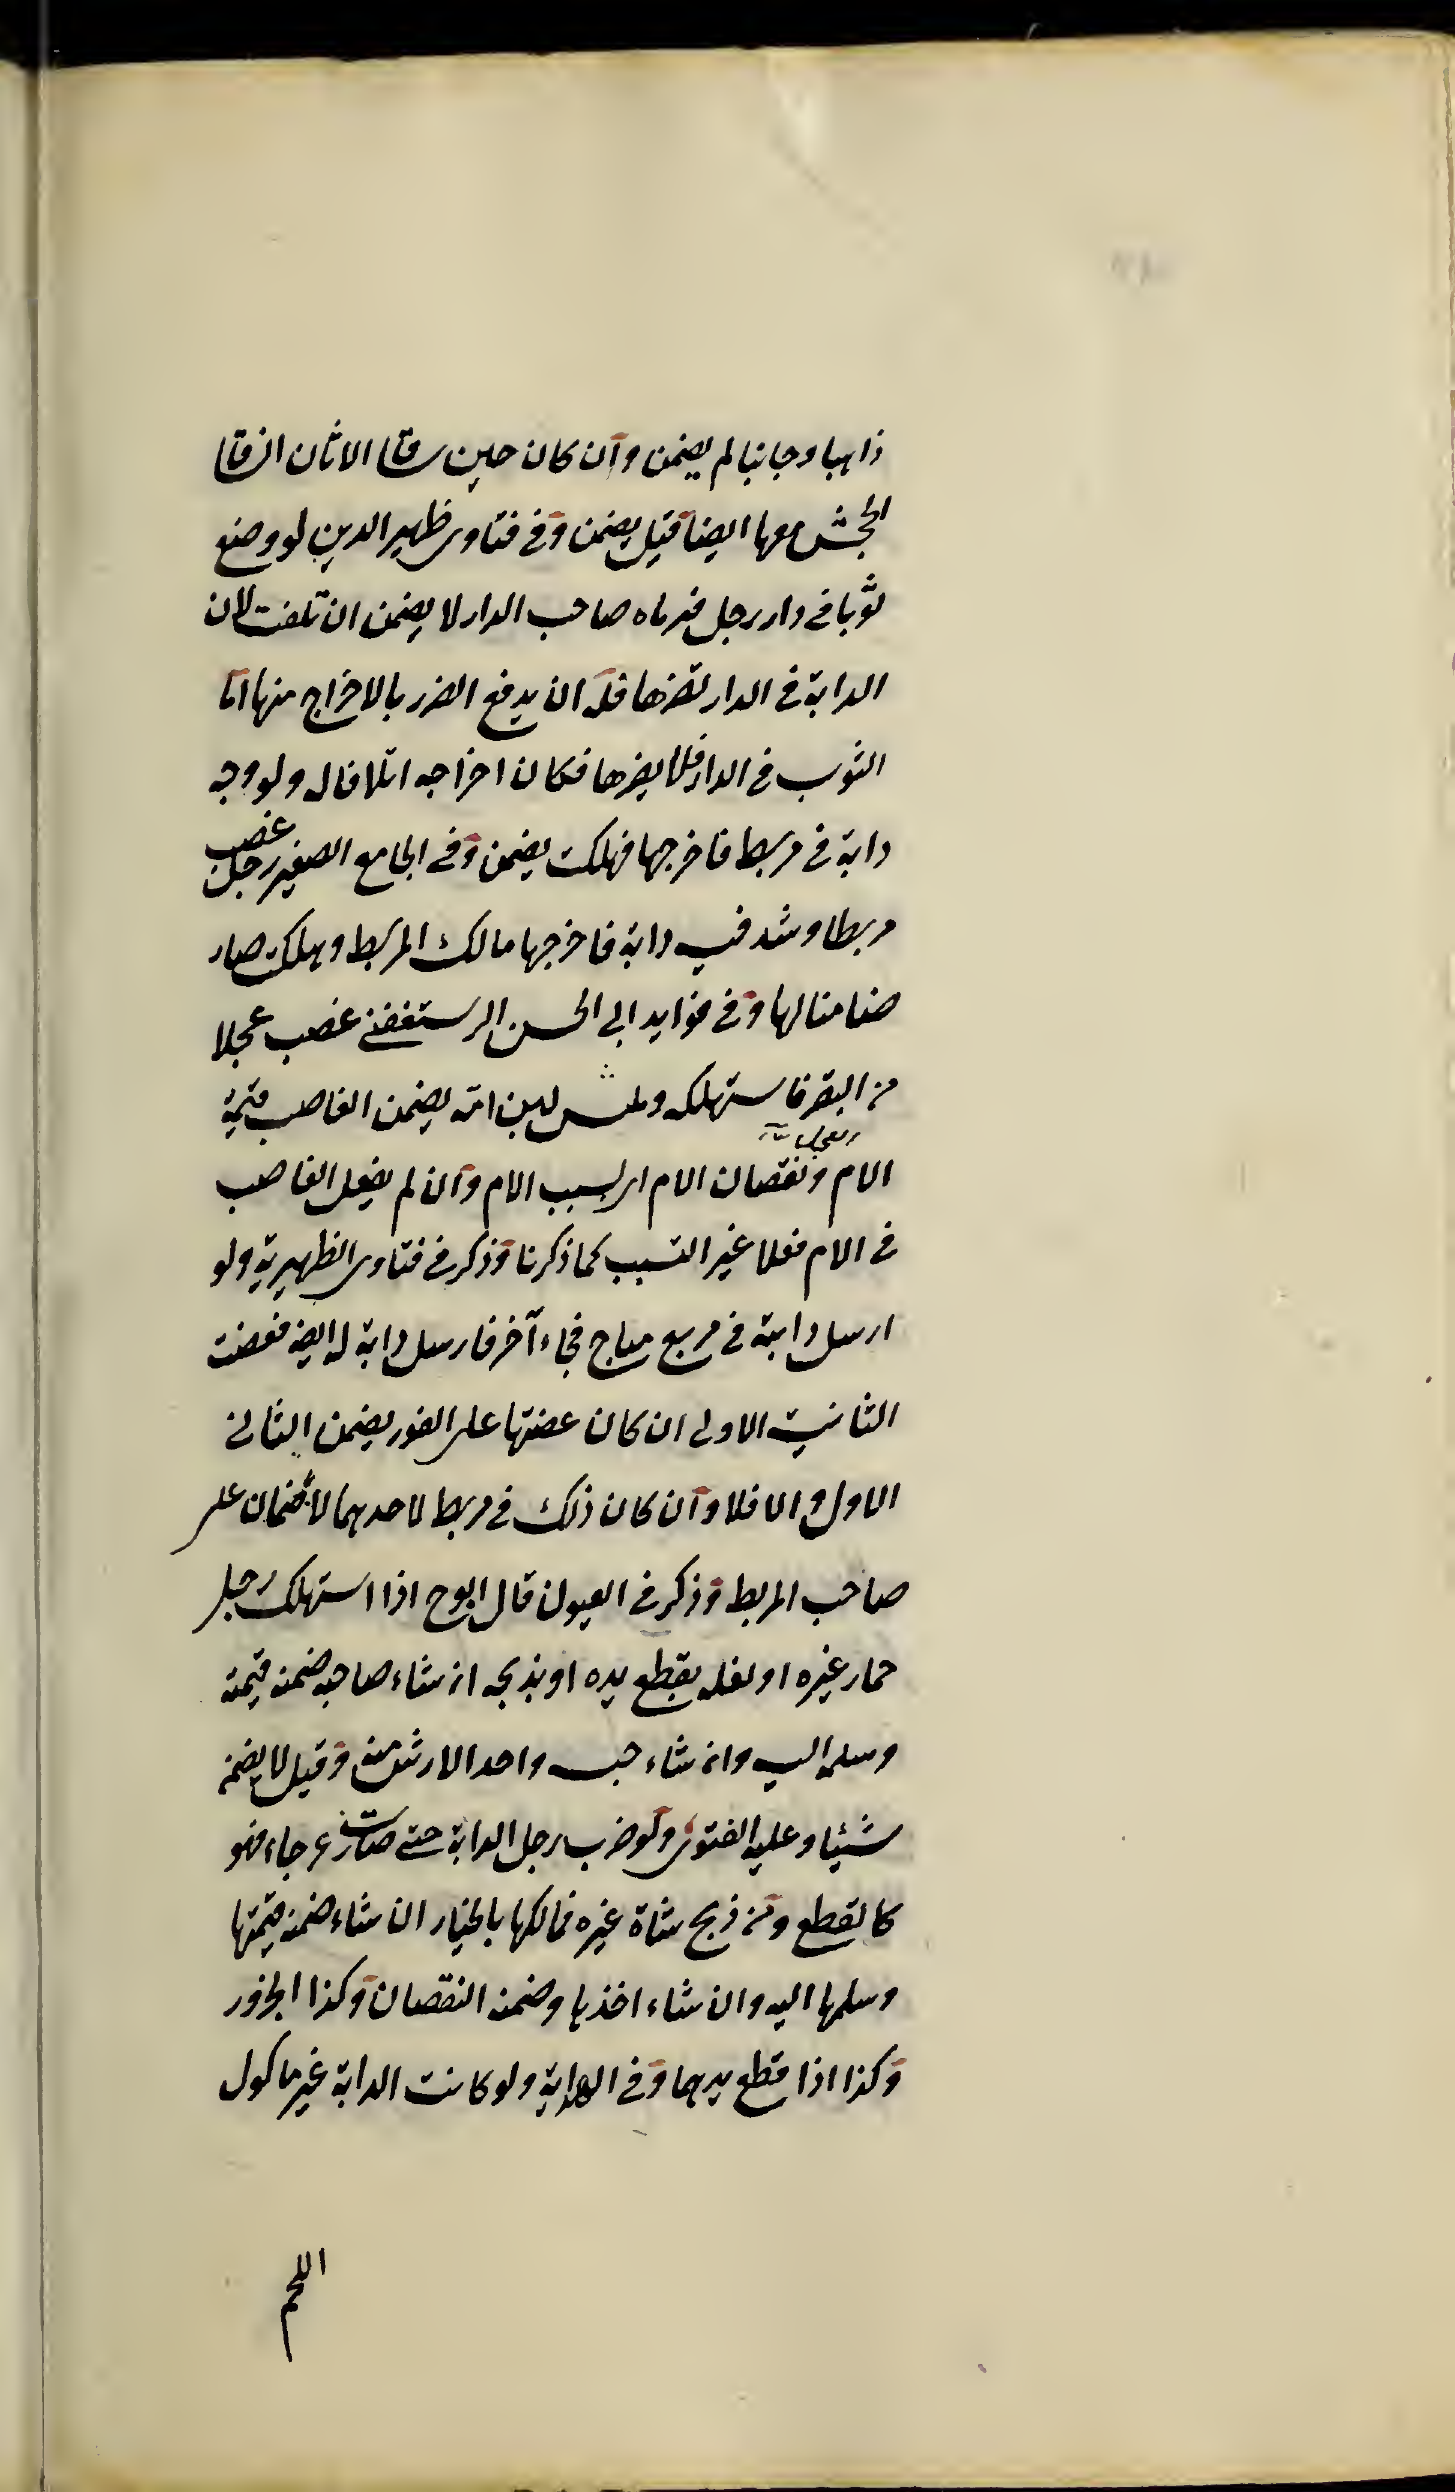 ذاهبا وجانبا لم يضمن وان كان حين ساق الاتان انساق
الجحش معها ايضا قيل يضمن وفي فتاوى ظهير الدين لو وضع
ثوبا في دار رجل فرماه صاحب الدار لا يضمن ان تلفت لان
الدابة في الدار تضرها فله ان يدفع الضرر بالاخراج منها اما
الثوب في الدار فلا يضرها فكان اخراجه اتلافا ل ولو وجد
دابة في مربط فاخرجها فهلكت يضمن وفي الجامع الصغير رجل غصب
مربطا وشد فيه دابة فاخرجها مالك المربط وهلكت صار
ضامنا لها وفي فوايد ابي الحسن الرستغفني غصب عجلا
من البقر فاستهلكه ويبس لبن امه يضمن الغاصب قيمة
العجل
الام ونقصان الام اي بسبب الام وان لم يفعل الغاصب
في الام فعلا غير التسبب كما ذكرنا وذكر في فتاوى الظهيرية ولو
ارسل دابة في مربع مباح فجاء آخر فارسل دابة له ايضا فعضت
الثانية الاولى ان كان عضتها على الفور يضمن الثاني
الاول والا فلا وان كان ذلك في مربط لاحدهما لا ضمان على
صاحب المربط وذكر في العيون قال ابو ح اذا استهلك رجل
حمار غيره او بغله بقطع يده او بذبحه ان شاء صاحبه ضمنه قيمته
وسلم اليه وان شاء حبسه واخذ الارش منه وقيل لا يضمن
شيئا وعليه الفتوى ولو ضرب رجل الدابة حتى صارت عرجاء فهو
كالقطع ومن ذبح شاة غيره فمالكها بالخيار ان شاء ضمنه قيمتها
وسلمها اليه وان شاء اخذها وضمنه النقصان وكذا الجزور
وكذا اذا قطع يدهما وفي الهداية ولو كانت الدابة غير ماكول
اللحم